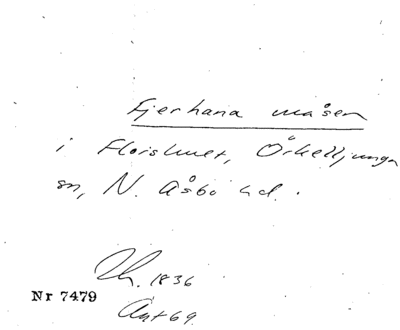 Fjerhana måsen
i Floishult, Örkelljunga
sn, N. Åsbo hd.
Th. 1836
Nr 7479
Ant 69